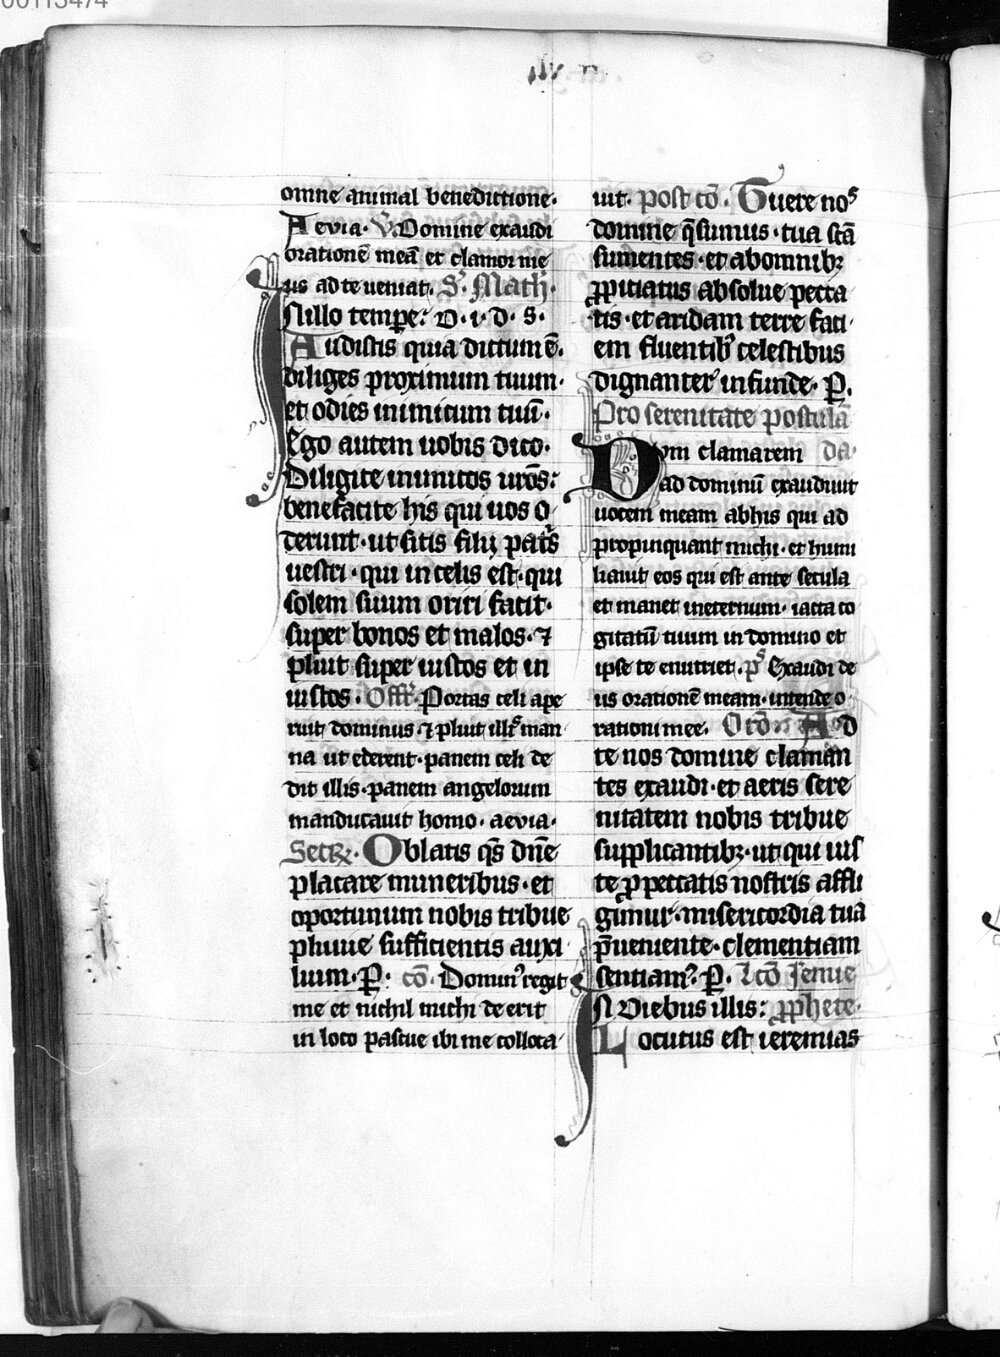 00113474
omne animal benedictione.
Aevia. V. Domine exaudi
orationē meā et clamor me
us ad te veniat. S. Math.
In illo tempe: D. i. d. s.
Audistis quia dictum ē.
diliges proximum tuum.
et odies inimicum tuū.
Ego autem vobis dico.
Diligite inimicos vrōs:
benefacite his qui vos o
derunt. ut sitis filij patris
vestri. qui in celis est. qui
solem suum oriri facit.
super bonos et malos. ⁊
pluit super iustos et in
iustos. Off. Portas celi ape
ruit dominus. ⁊ pluit ill' man
na ut ederent. panem celi de
dit illis. panem angelorum
manducavit homo. aevia.
Secrꝫ. Oblatis qs dn̄e
placare muneribus. et
oportunum nobis tribue
pluvie sufficientis auxi
lium. P. cō. Domin' regit
me et nichil michi deerit
in loco pascue ibi me colloca
vit. post cō. Tuere nos
domine qsumus. tua scā
sumentes. et ab omnibꝫ
ꝓpitiatus absolve pecca
tis. et aridam terre faci
em fluentib' celestibus
dignanter infunde. P.
Pro serenitate postulā
Dum clamarem da
ad dominū exaudivit
vocem meam ab his qui ad
propinquant michi. et humi
liavit eos qui est ante secula
et manet ineternum. iacta co
gitatū tuum in domino et
ipse te enutriet. ps Exaudi de
us orationē meam. intende o
rationi mee. Orō. Ad
te nos domine claman
tes exaudi. et aeris sere
nitatem nobis tribue
supplicantibꝫ. ut qui ius
te ꝓ peccatis nostris affli
gimur. misericordia tua
p̄veniente. clementiam
sentiam'. P. Lcō Jeremie
In diebus illis: ꝓphete.
Locutus est ieremias